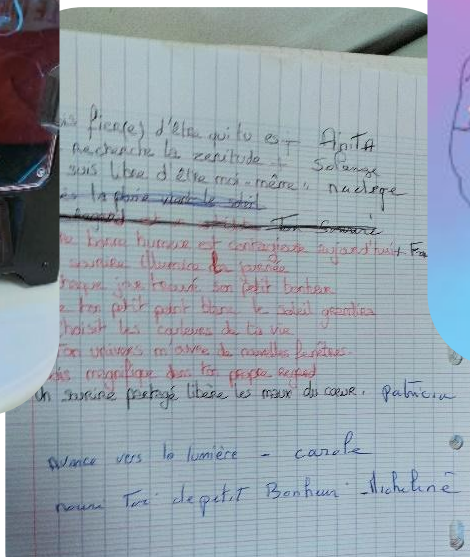 fier(e) d'être qui tu es - AniTA
Recherche la zenitude - Solange
suis libre d'être moi-même. nadège
la
Ton
bonne humeur est contagieuse aujourd'hui
sourire illumine la journée
chaque jour trouve son petit bonheur
ton petit point blanc le soleil grandira
choisit les couleurs de ta vie
Ton univers m'ouvre de nouvelles fenêtres
magnifique dans ton propre regard
Un sourire partagé libère les maux du cœur. patricia
Avance vers la lumière - carole
Toi de petit Bonheur - Micheline